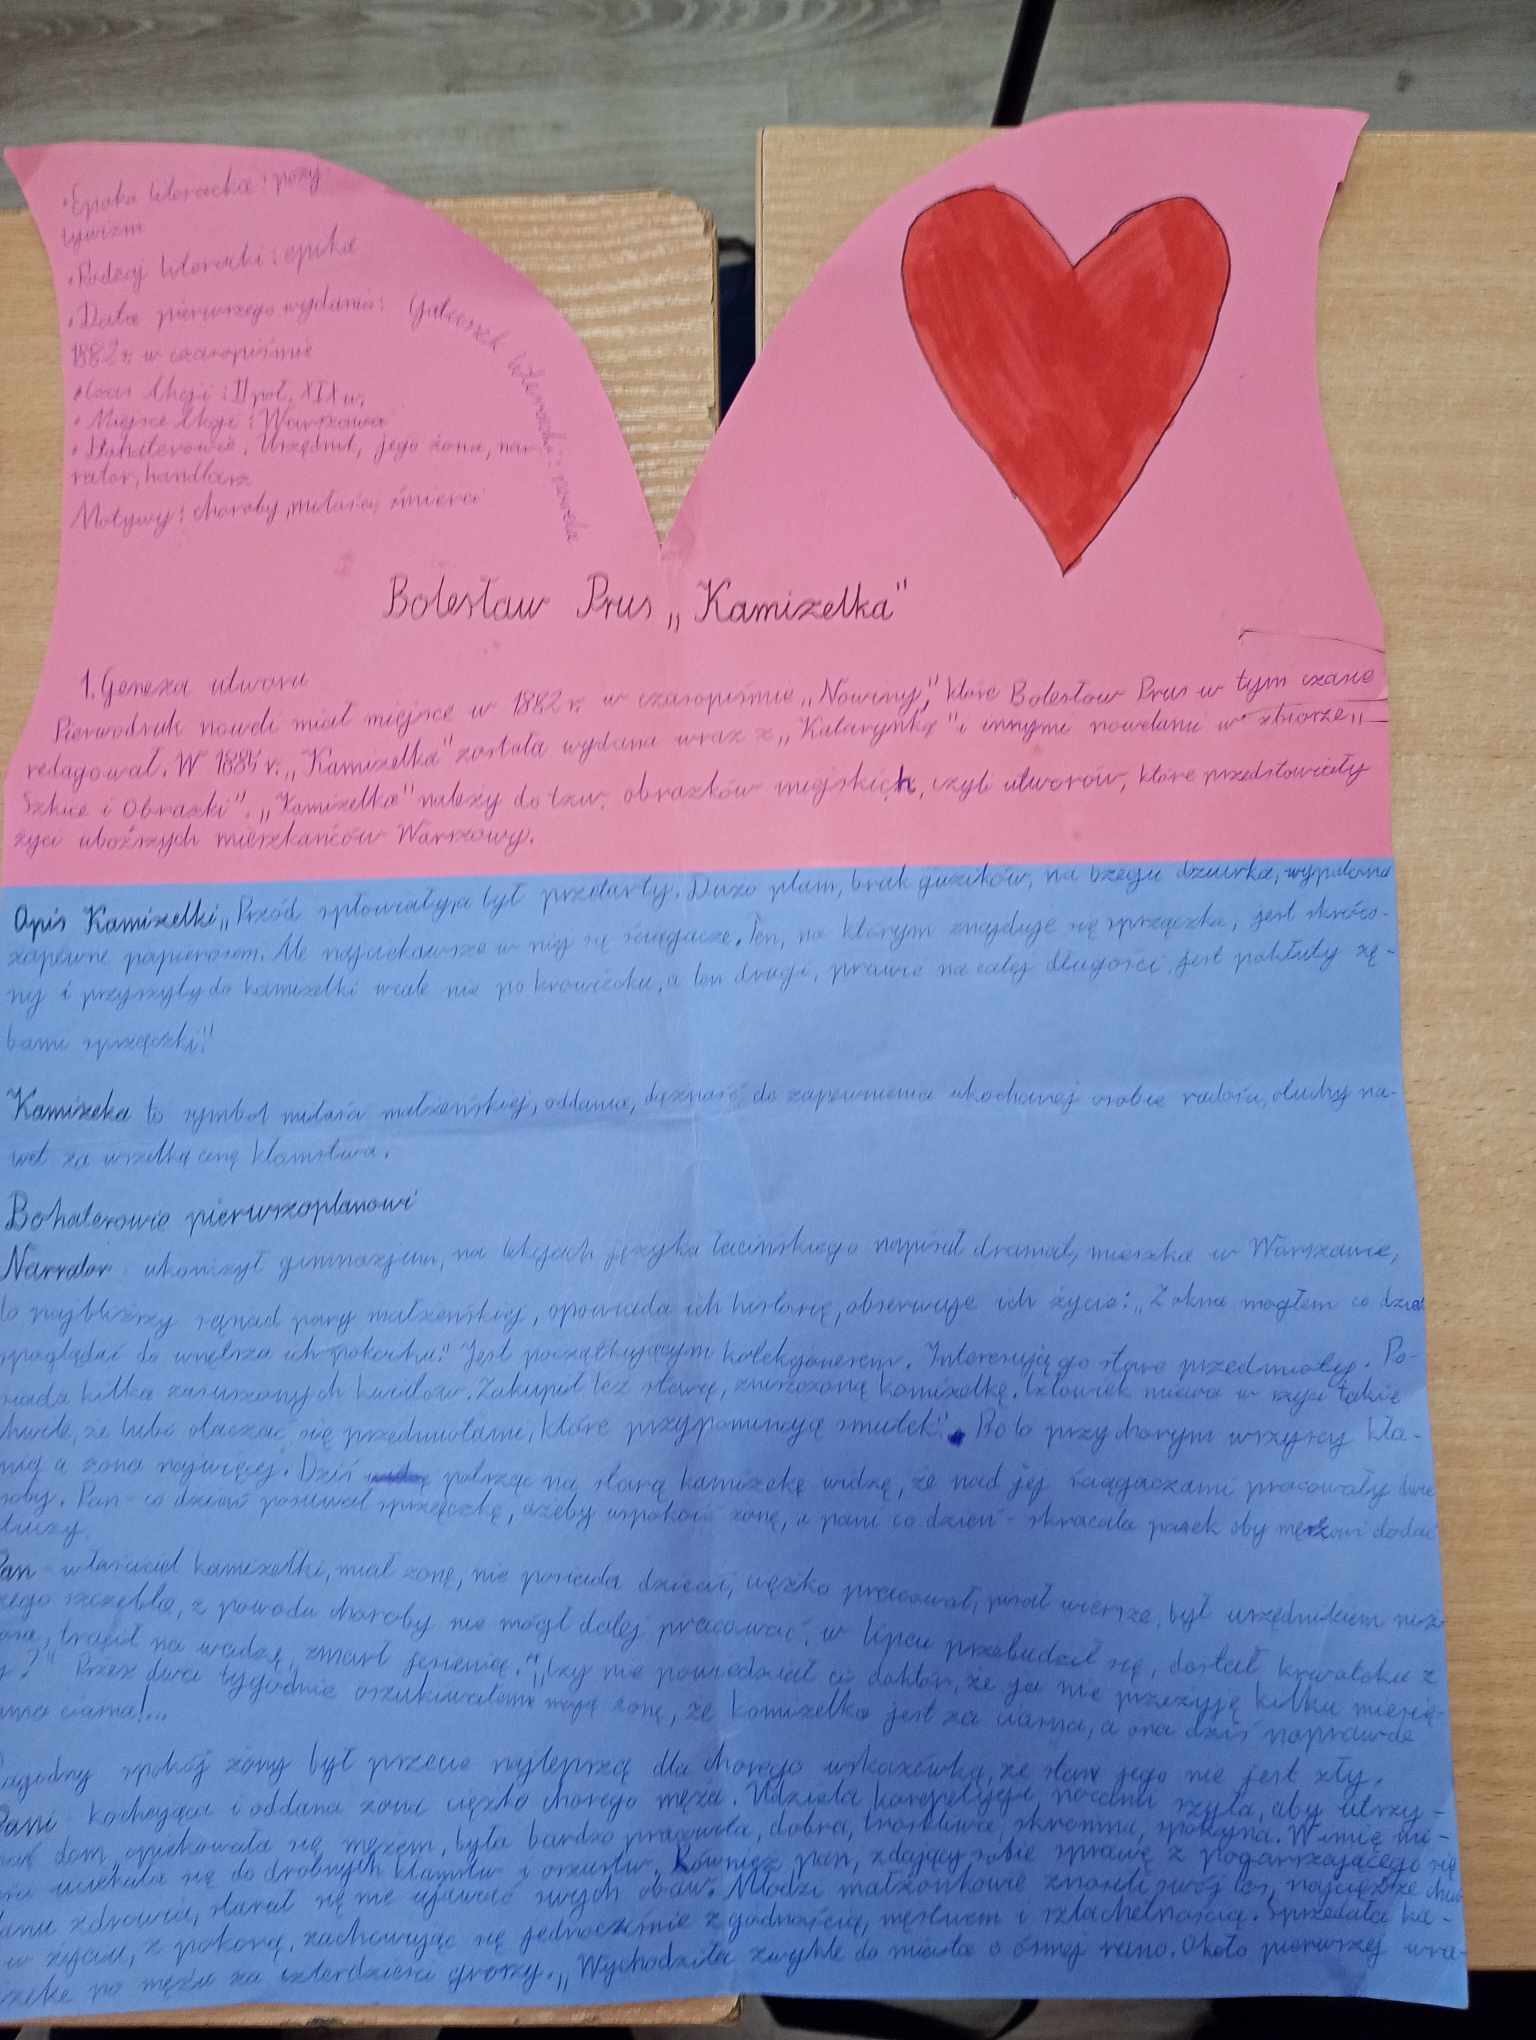 •Epoka literacka: pozy-
tywizm
•Rodzaj literacki: epika
•Data pierwszego wydania:
1882 r. w czasopiśmie
•Czas akcji: II poł. XIX w.
•Miejsce akcji: Warszawa
•Bohaterowie: Urzędnik, jego żona, nar-
rator, handlarz
Motywy: choroby, miłości, śmierci
Gatunek literacki: nowela
Bolesław Prus „Kamizelka"
1. Geneza utworu
Pierwodruk noweli miał miejsce w 1882 r. w czasopiśmie „Nowiny", które Bolesław Prus w tym czasie
redagował. W 1885 r. „Kamizelka" została wydana wraz z „Katarynką" i innymi nowelami w zbiorze „
Szkice i Obrazki". „Kamizelka" należy do tzw. obrazków miejskich, czyli utworów, które przedstawiały
życi uboższych mieszkańców Warszawy.
Opis Kamizelki „Przód spłowiały, a tył przetarty. Dużo plam, brak guzików, na bzegu dziurka, wypalona
zapewne papierosem. Ale najciekawsze w niej są ściągacze. Ten, na którym znajduje się sprzączka, jest skróco-
ny i przyszyty do kamizelki wcale nie po krawiecku, a ten drugi, prawie na całej długości, jest pokłuty zę-
bami sprzączki."
Kamizeka to symbol miłości małżeńskiej, oddania, dążność do zapewnienia ukochanej osobie radości, otuchy na-
wet za wszelką cenę kłamstwa.
Bohaterowie pierwszoplanowi
Narrator ukończył gimnazjum, na lekcjach języka łacińskiego napisał dramat, mieszka w Warszawie,
to najbliższy sąsiad pary małżeńskiej, opowiada ich historię, obserwuje ich życie: „Z okna mogłem co dzień
spoglądać do wnętrza ich pokoiku." Jest początkującym kolekcjonerem. Interesują go stare przedmioty. Po-
siada kilka zasuszonych kwiatów. Zakupił też starą, zniszczoną kamizelkę. Człowiek miewa w życiu takie
chwile, że lubi otaczać się przedmiotami, które przypominają smutek". Bo to przy chorym wszyscy kła-
mią a żona najwięcej. Dziś patrząc na starą kamizekę widzę, że nad jej ściągaczami pracowały dwie
osoby. Pan - co dzień posuwał sprzączkę, ażeby uspokoić żonę, a pani co dzień - skracała pasek aby mężowi dodać
otuchy.
Pan - właściciel kamizelki, miał żonę, nie posiada dzieci, ciężko pracował, pisał wiersze, był urzędnikiem niż-
zego szczebla, z powodu choroby nie mógł dalej pracować, w lipcu przebudził się, dostał krwotoku z
nosa, tracił na wadze, zmarł jesienią. „Czy nie powiedział ci doktór, że ja nie przeżyję kilku miesię-
y?" Przez dwa tygodnie oszukiwałem moją żonę, że kamizelka jest za ciasna, a ona dziś naprawdę
sama ciasna!...
Łagodny spokój żony był przecie najlepszą dla chorego wskazówką, że stan jego nie jest zły.
Pani - kochająca i oddana żona ciężko chorego męża. Udziela korepetycji, nocami szyła, aby utrzy-
mać dom, opiekowała się mężem, była bardzo pracowita, dobra, troskliwa, skromna, spokojna. W imię mi-
uciekała się do drobnych kłamstw i oszustw. Również pan, zdający sobie sprawę z pogarszającego się
stanu zdrowia, starał się nie ujawniać swych obaw. Młodzi małżonkowie znosili swój los, najcięższe chwi
w życiu, z pokorą, zachowując się jednocześnie z godnością, męstwem i szlachetnością. Sprzedała ka-
izekę po mężu za czterdzieści groszy. „Wychodziła zwykle do miasta o ósmej rano. Około pierwszej wra-